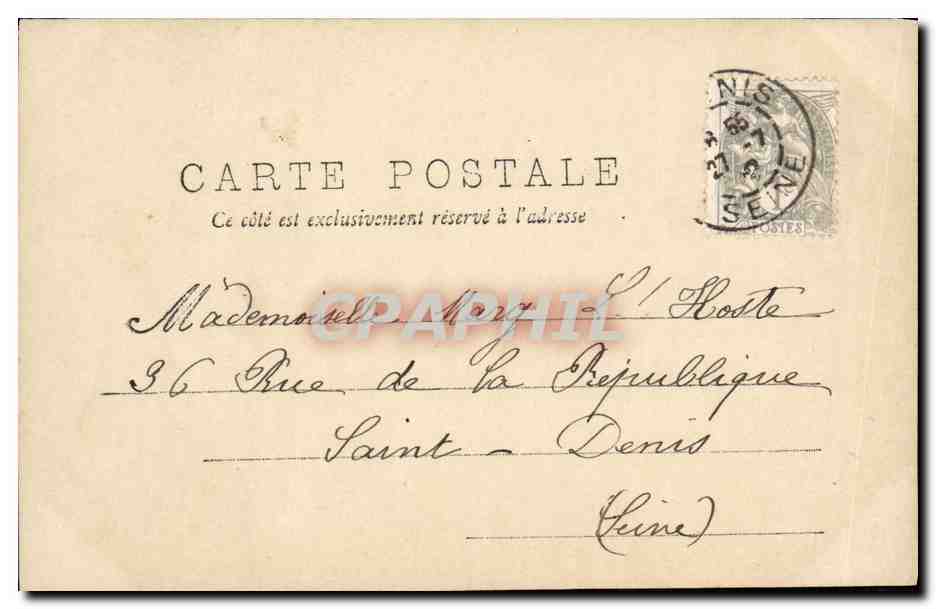 NIS
SEINE
POSTES
CARTE POSTALE
Ce côté est exclusivement réservé à l'adresse
CPAPHIL
Mademoiselle Marg L'Hoste
36 Rue de la République
Saint-Denis
(Seine)